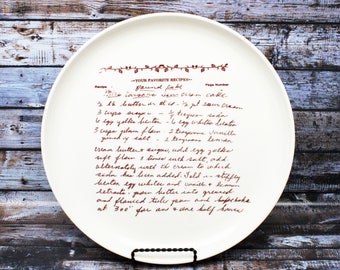 YOUR FAVORITE RECIPES
Recipe Pound Cake Page Number
sour cream cake
½ lb butter or 1/2 pt sour cream
3 cups sugar - ½ teaspoon soda
6 egg yolks beaten - 6 egg whites beaten
3 cups plain flour - 2 teaspoons vanilla
pinch of salt - 2 teaspoons lemon
cream butter & sugar, add egg yolks
sift flour 3 times with salt, add
alternately with the cream to which
soda has been added. Fold in stiffly
beaten egg whites and vanilla & lemon
extracts. pour batter into greased
and floured tube pan and bake
at 300° for an & one half hours